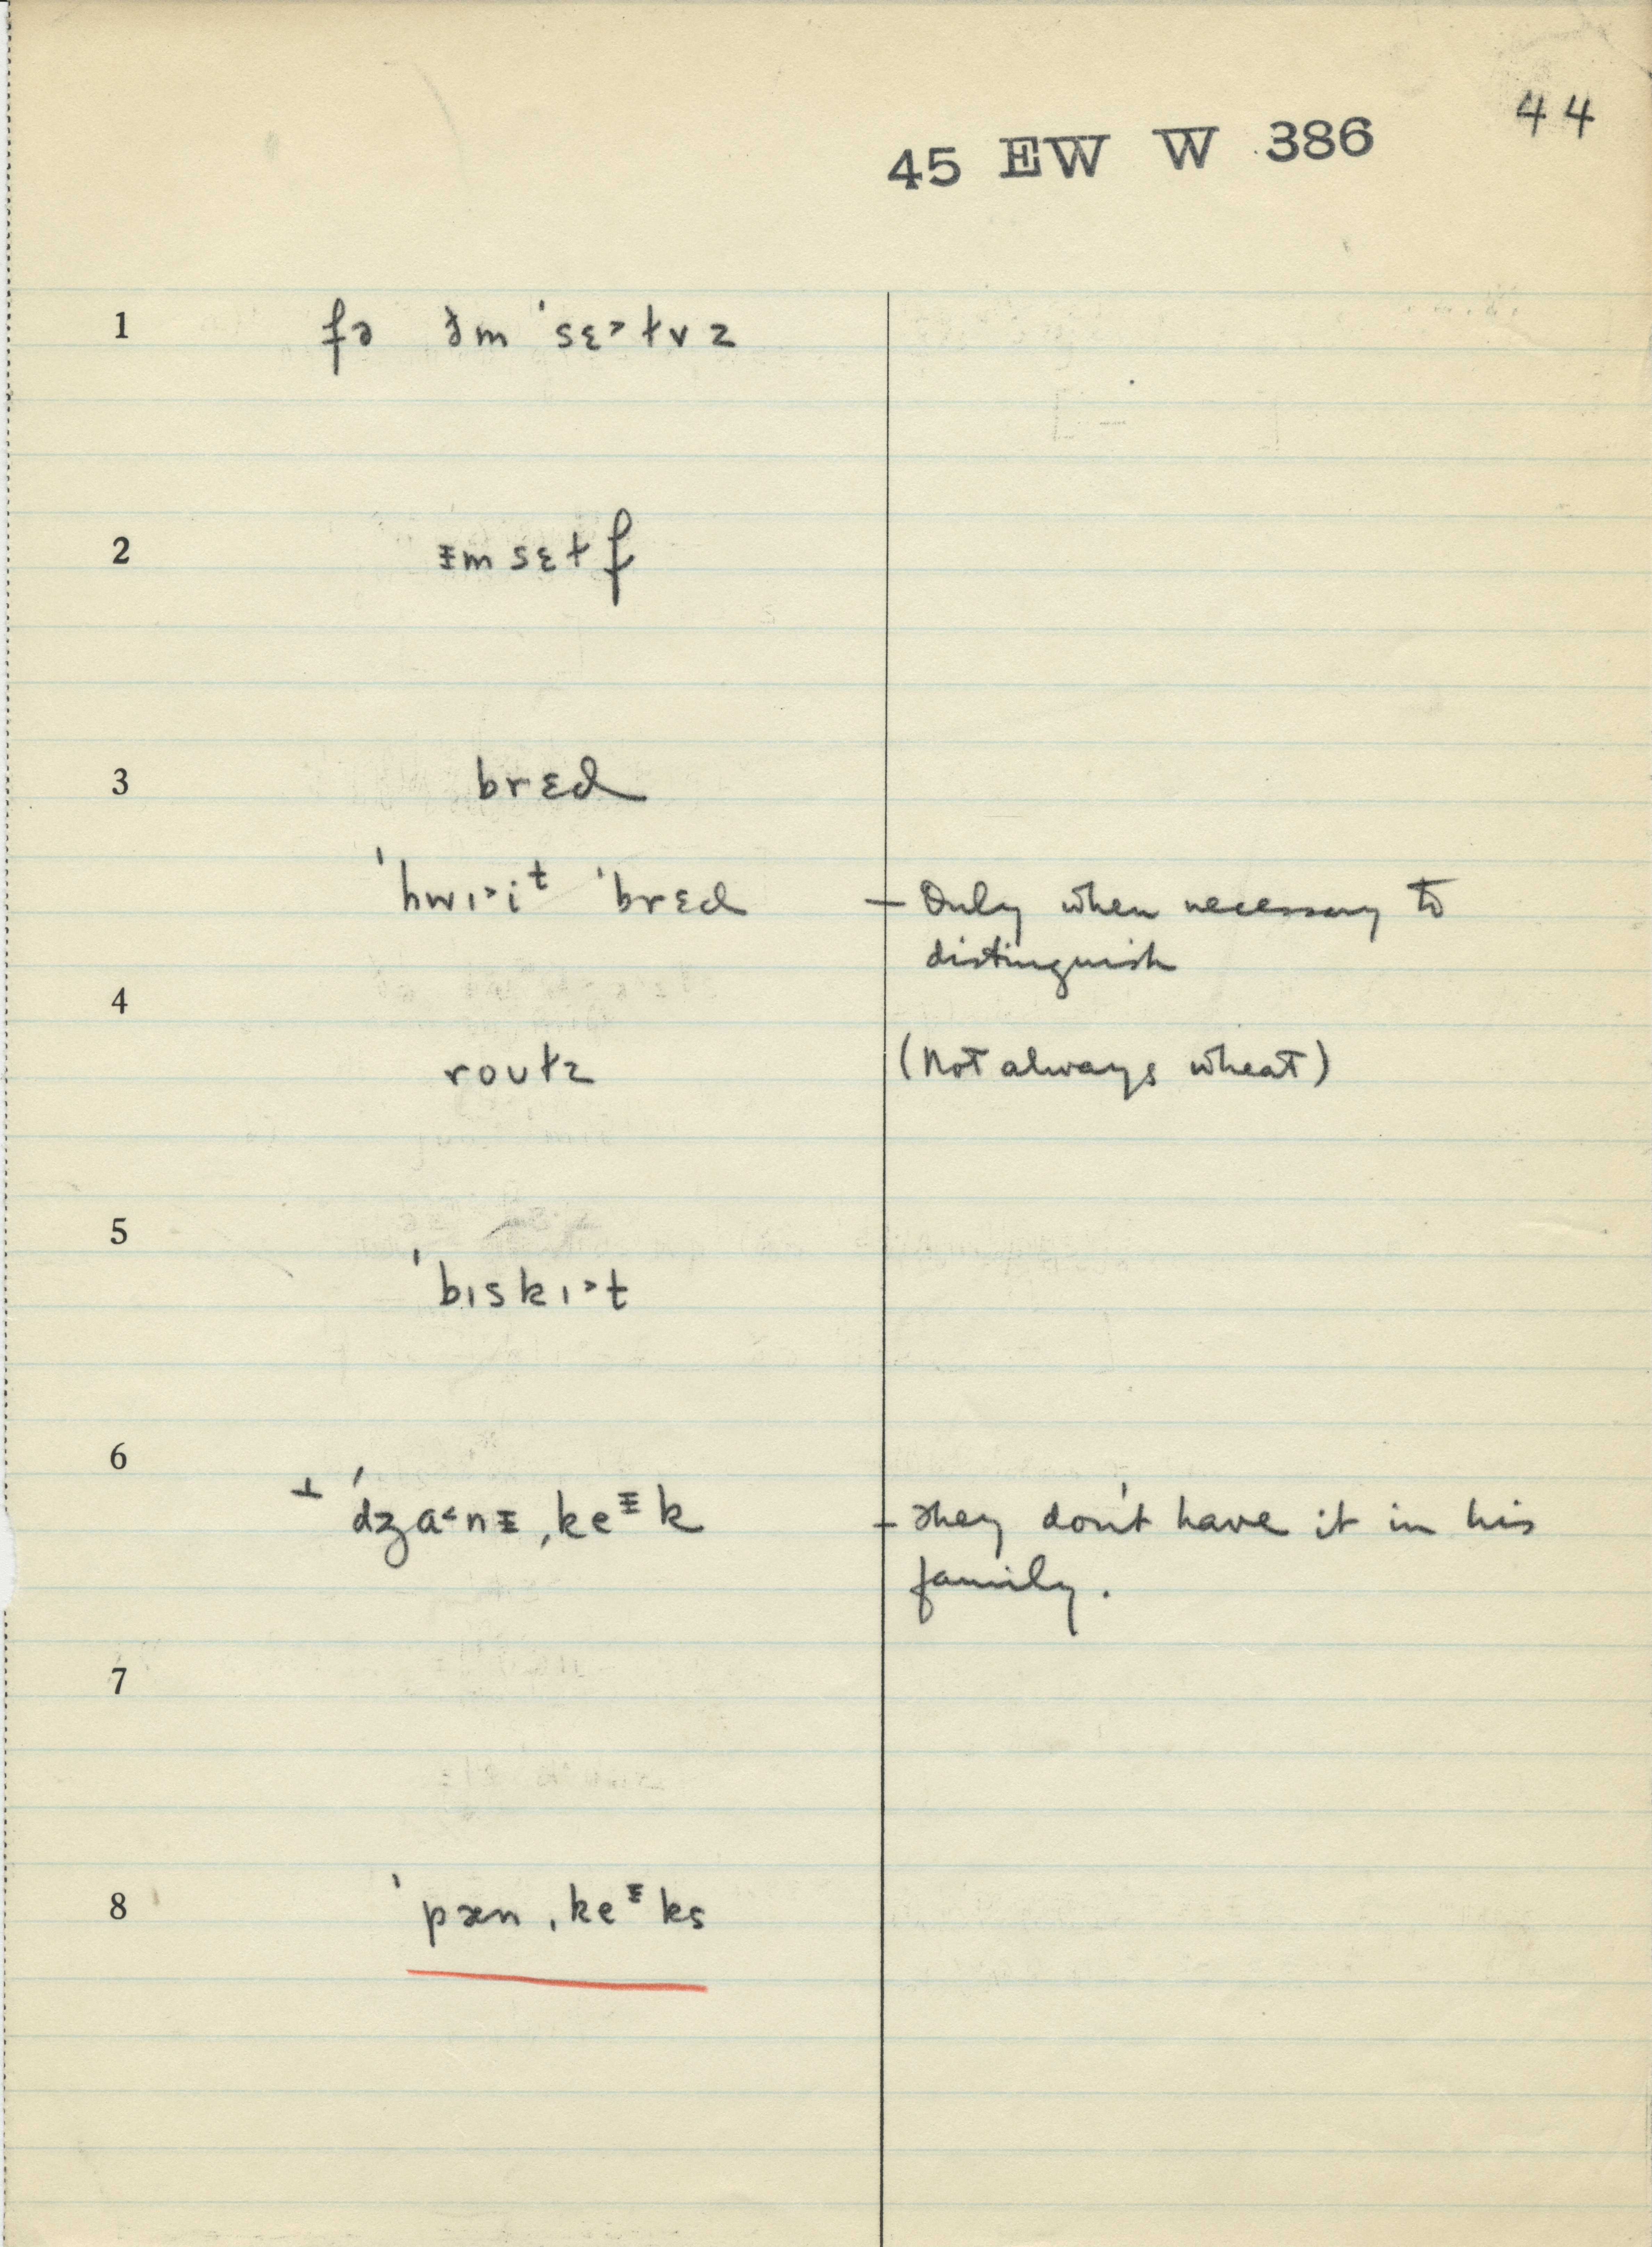 44
45 EW W 386
1 fə ðm ˈsɛ˃ɫvz
2 ɪmsɛɫf
3 brɛd
ˈhwɪ˃iᵗ ˈbrɛd – Only when necessary to
distinguish
4
roʊɫz (Not always wheat)
5
ˈbɪskɪ˃t
6
⊥ ˈdʒɑ˂nɪ ˌkeᶦk – They don't have it in his
family.
7
8 ˈpæn ˌkeᶦks